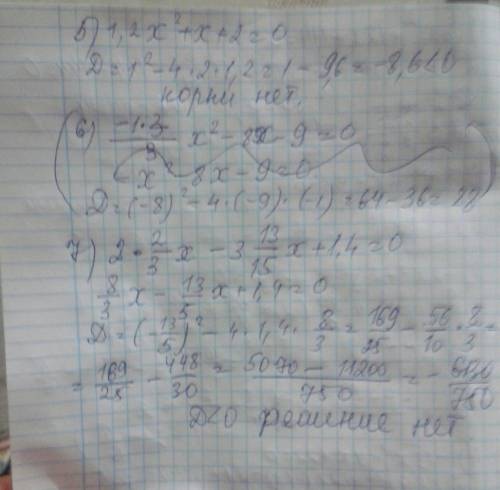 5) 1,2x²+x+2=0
D=1²-4·2·1,2=1-9,6=-8,6<0
корни нет.
6) -1·3/3 x²-8x-9=0
-x²-8x-9=0
D=(-8)²-4·(-9)·(-1)=64-36=28
7) 2·2/3 x-3 13/15 x+1,4=0
8/3 x-13/5 x+1,4=0
D=(-13/5)²-4·1,4·8/3=169/25-56/10·8/3=
=169/25-448/30=5070-11200/750=-6130/750
D<0 решение нет